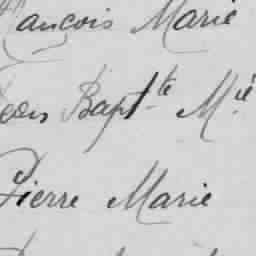 François Marie
Jean Bapt^te M^ie
Pierre Marie